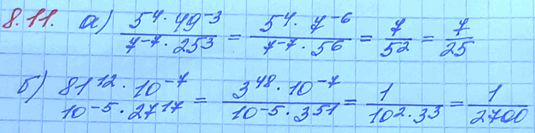 8.11. а) 5⁴ · 49⁻³ / 7⁻⁷ · 25³ = 5⁴ · 7⁻⁶ / 7⁻⁷ · 5⁶ = 7 / 5² = 7 / 25
б) 81¹² · 10⁻⁷ / 10⁻⁵ · 27¹⁷ = 3⁴⁸ · 10⁻⁷ / 10⁻⁵ · 3⁵¹ = 1 / 10² · 3³ = 1 / 2700